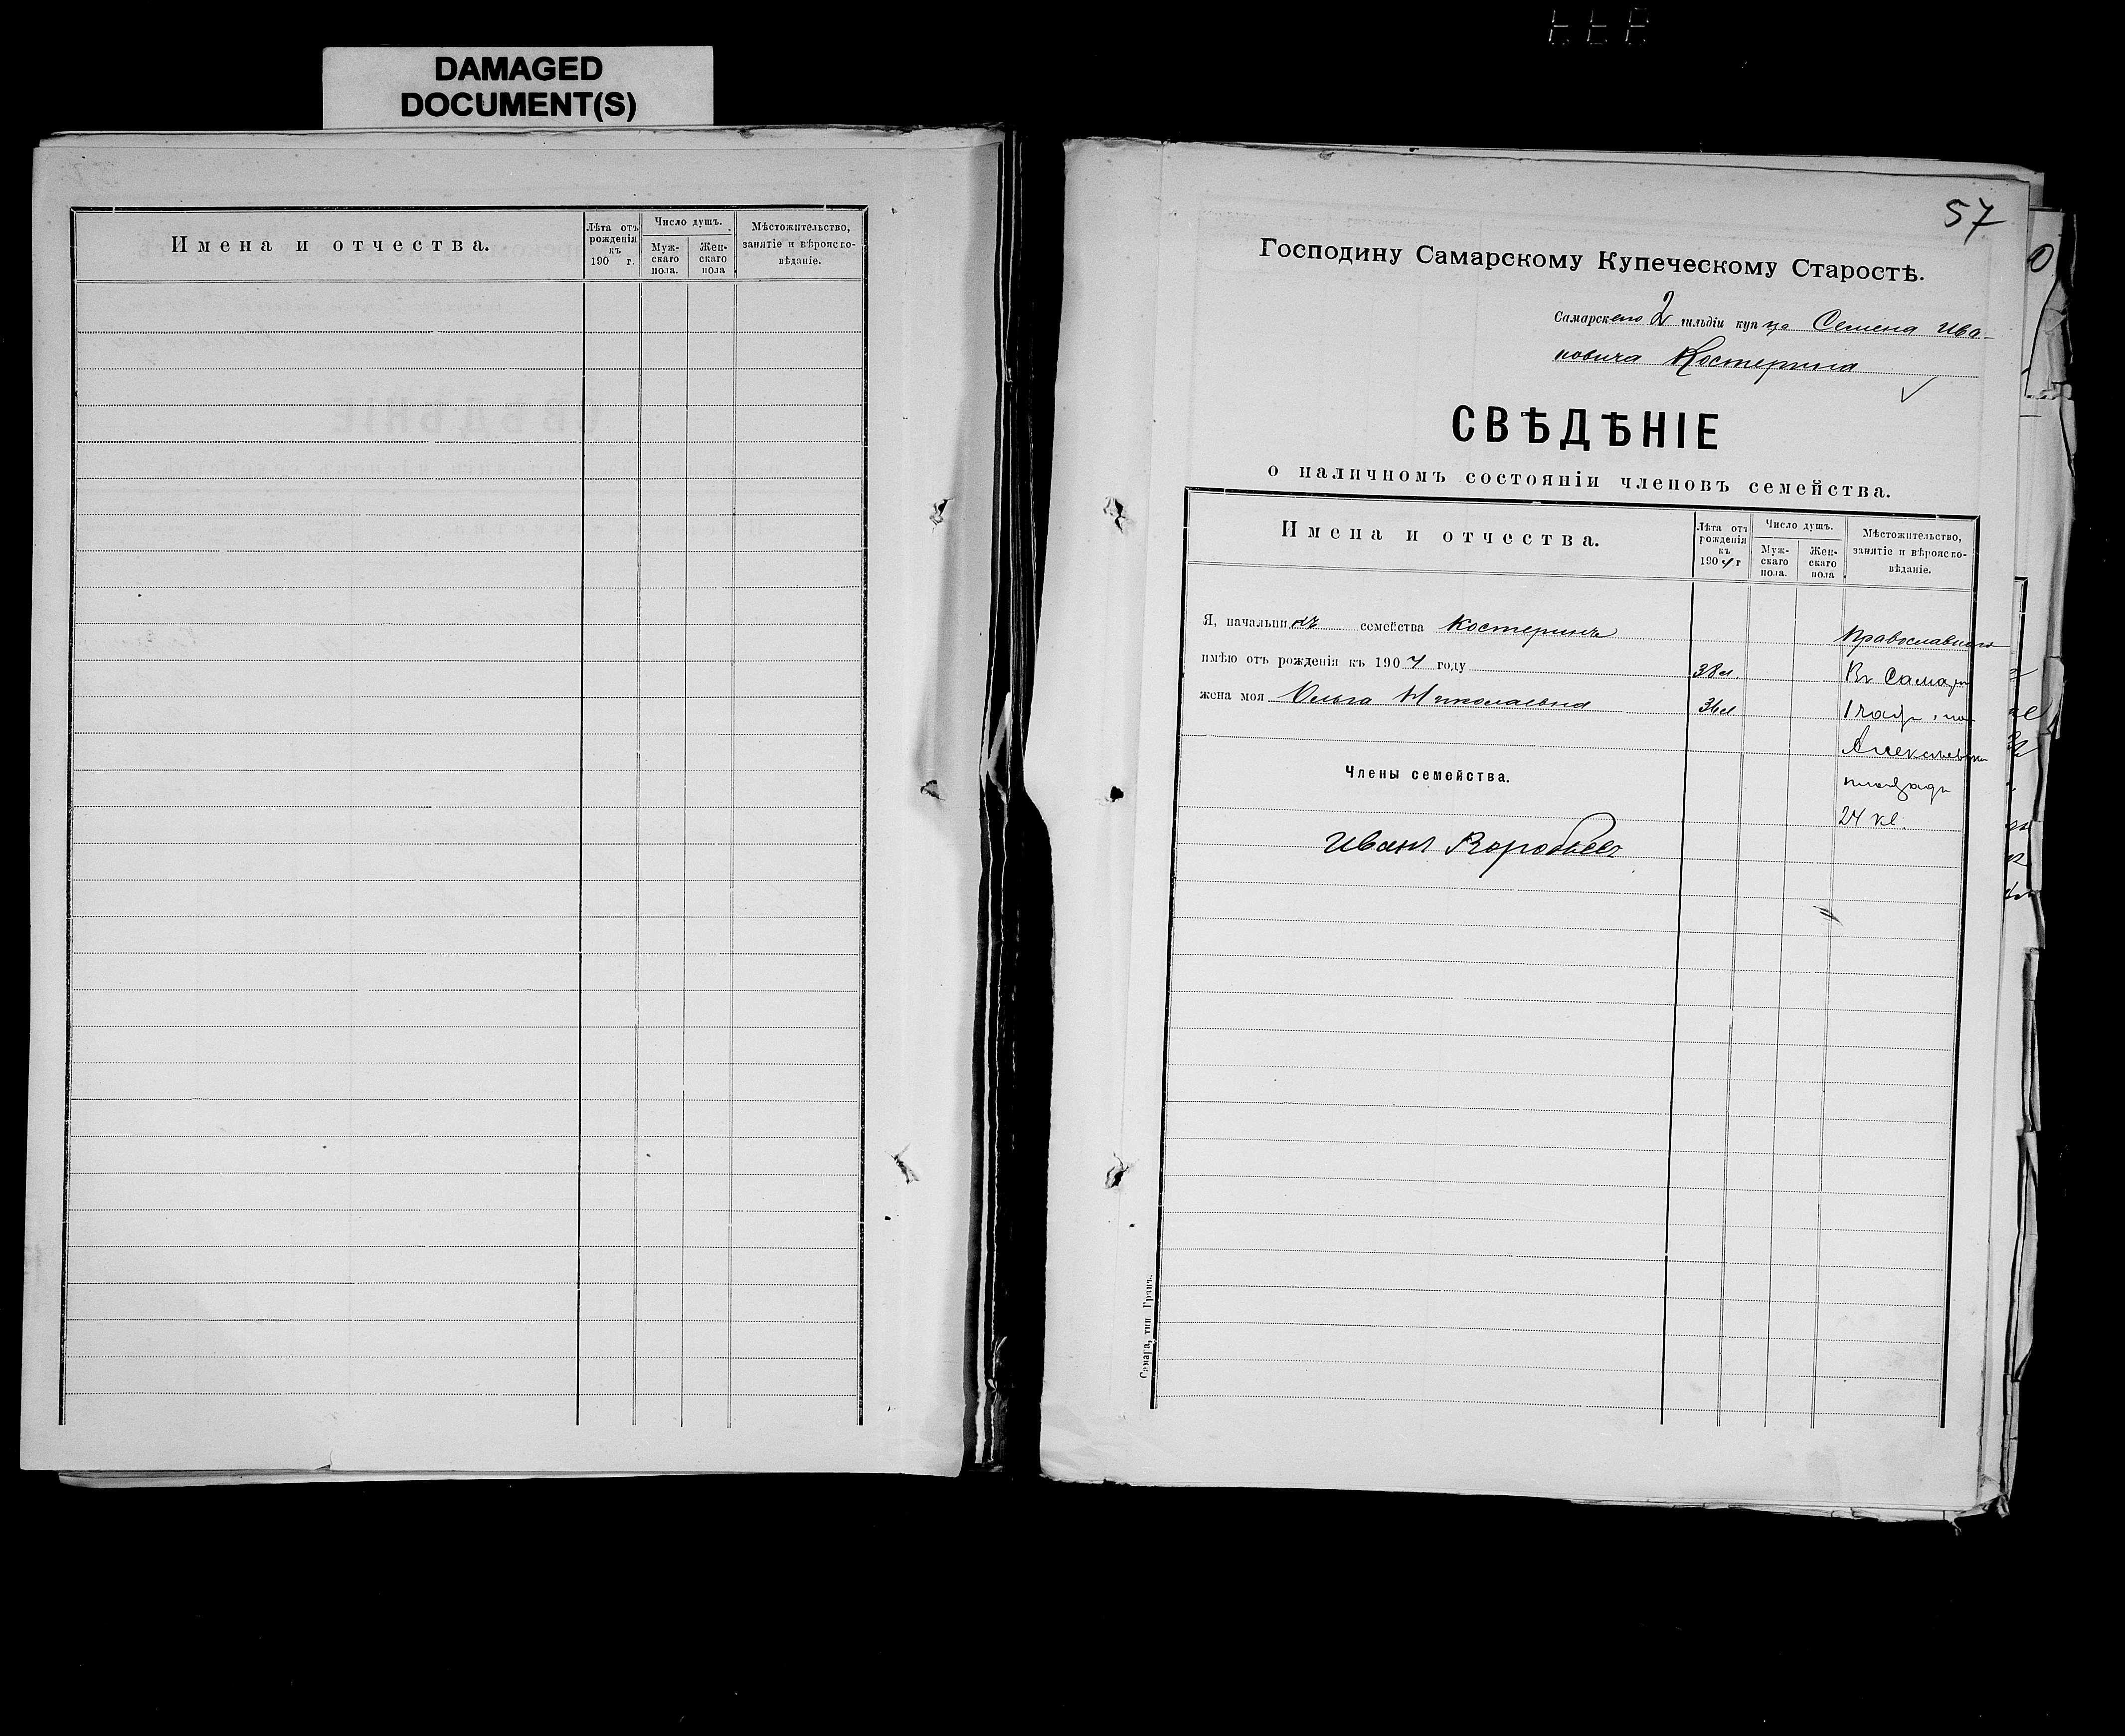 DAMAGED
DOCUMENT(S)
Имена и отчества.
Лѣта отъ рожденія къ 190 г.
Число душъ.
Мужскаго пола.
Женскаго пола
Мѣстожительство, занятіе и вѣроисповѣданіе.
57
Господину Самарскому Купеческому Старостѣ.
Самарскаго 2 гильдіи купца Семена Ива-
новича Костерина
СВѢДѢНІЕ
о наличномъ состояніи членовъ семейства.
Имена и отчества.
Лѣта отъ рожденія къ 1904 г
Число душъ.
Мужскаго пола.
Женскаго пола
Мѣстожительство, занятіе и вѣроисповѣданіе.
Я, начальникъ семейства Костеринъ
Православнаго
имѣю отъ рожденія къ 1904 году 38 л. Въ Самарѣ
жена моя Ольга Николаевна 36 л 1 части, на
Алексѣевск
Члены семейства.
площади
24 кв.
Иванъ Воробьевъ
Самара, тип Гранъ.